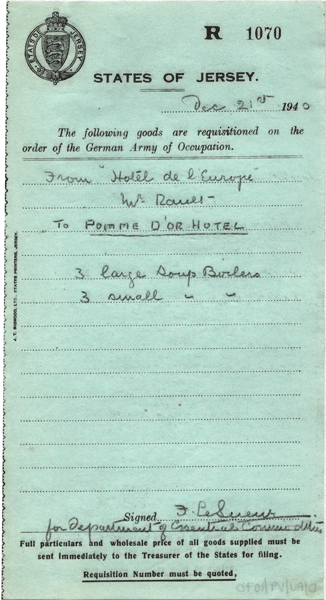 STATES OF JERSEY
R 1070
STATES OF JERSEY.
Dec 21st 1940
The following goods are requisitioned on the
order of the German Army of Occupation.
From "Hotel de l'Europe"
Mr Rault
To POMME D'OR HOTEL
3 large Soup Boilers
3 small " "
Signed F LeSueur
for Department of Essential Commodities
Full particulars and wholesale price of all goods supplied must be
sent immediately to the Treasurer of the States for filing.
Requisition Number must be quoted,